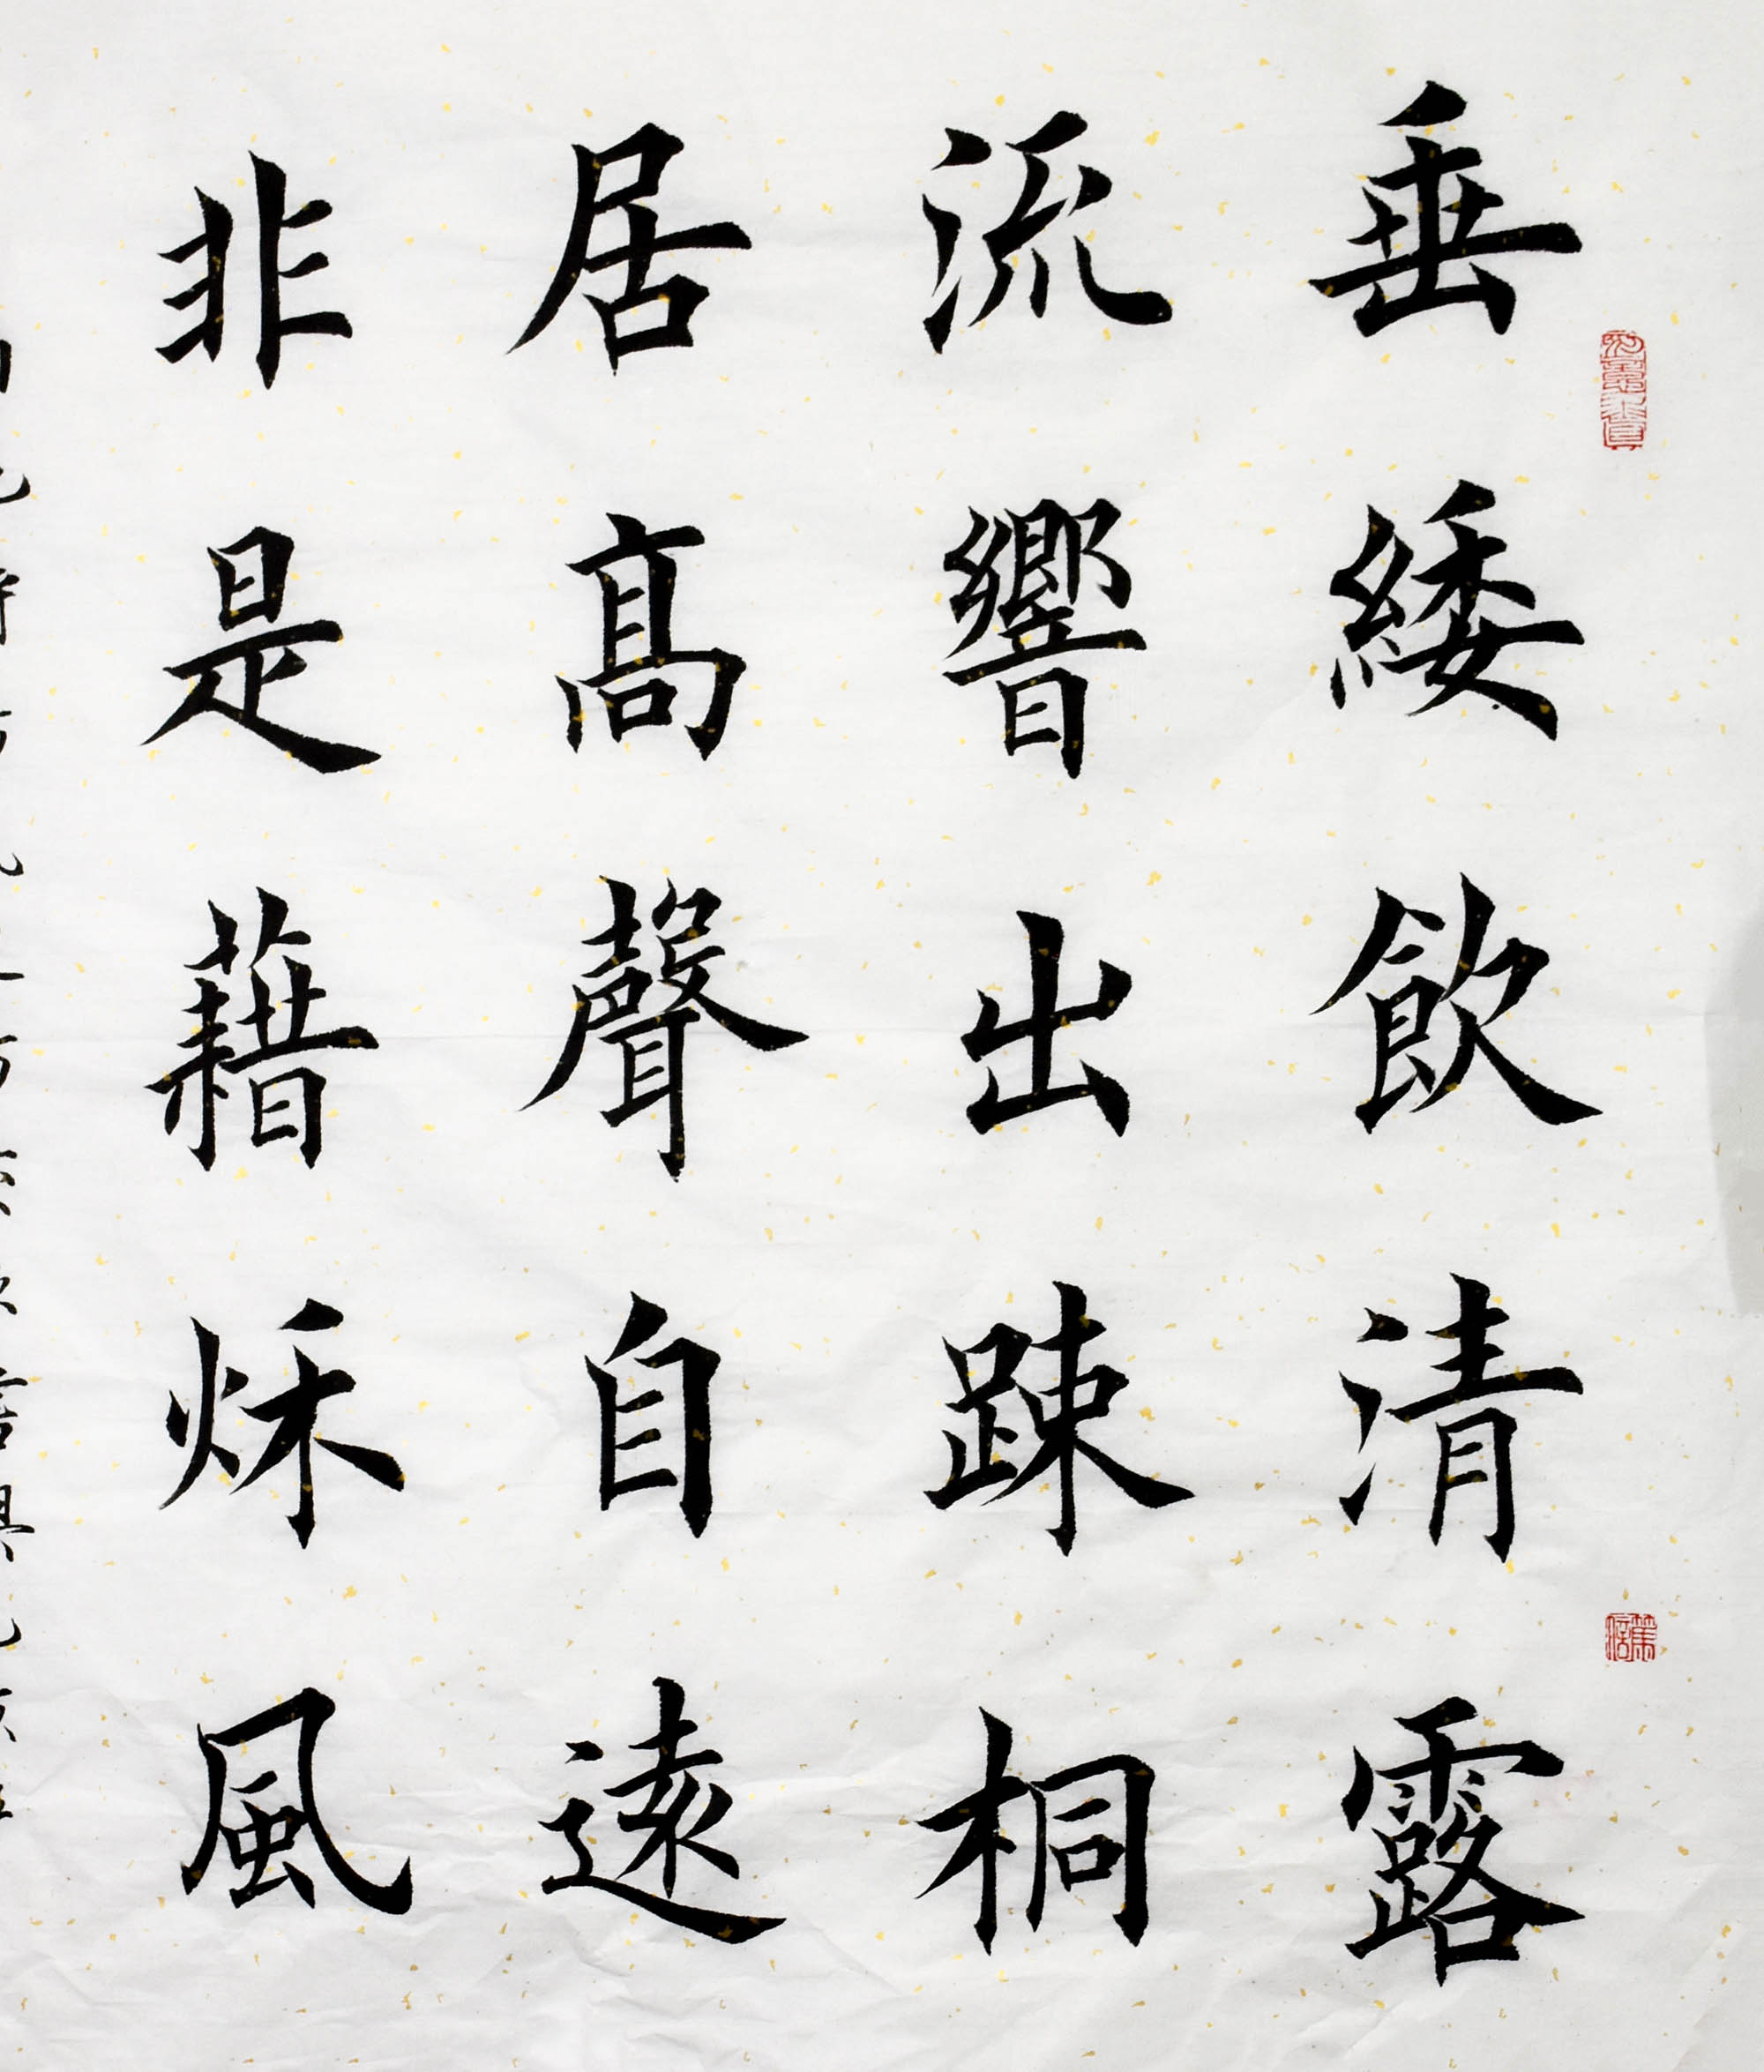 垂緌飲清露
流響出踈桐
居髙聲自遠
非是藉烌風